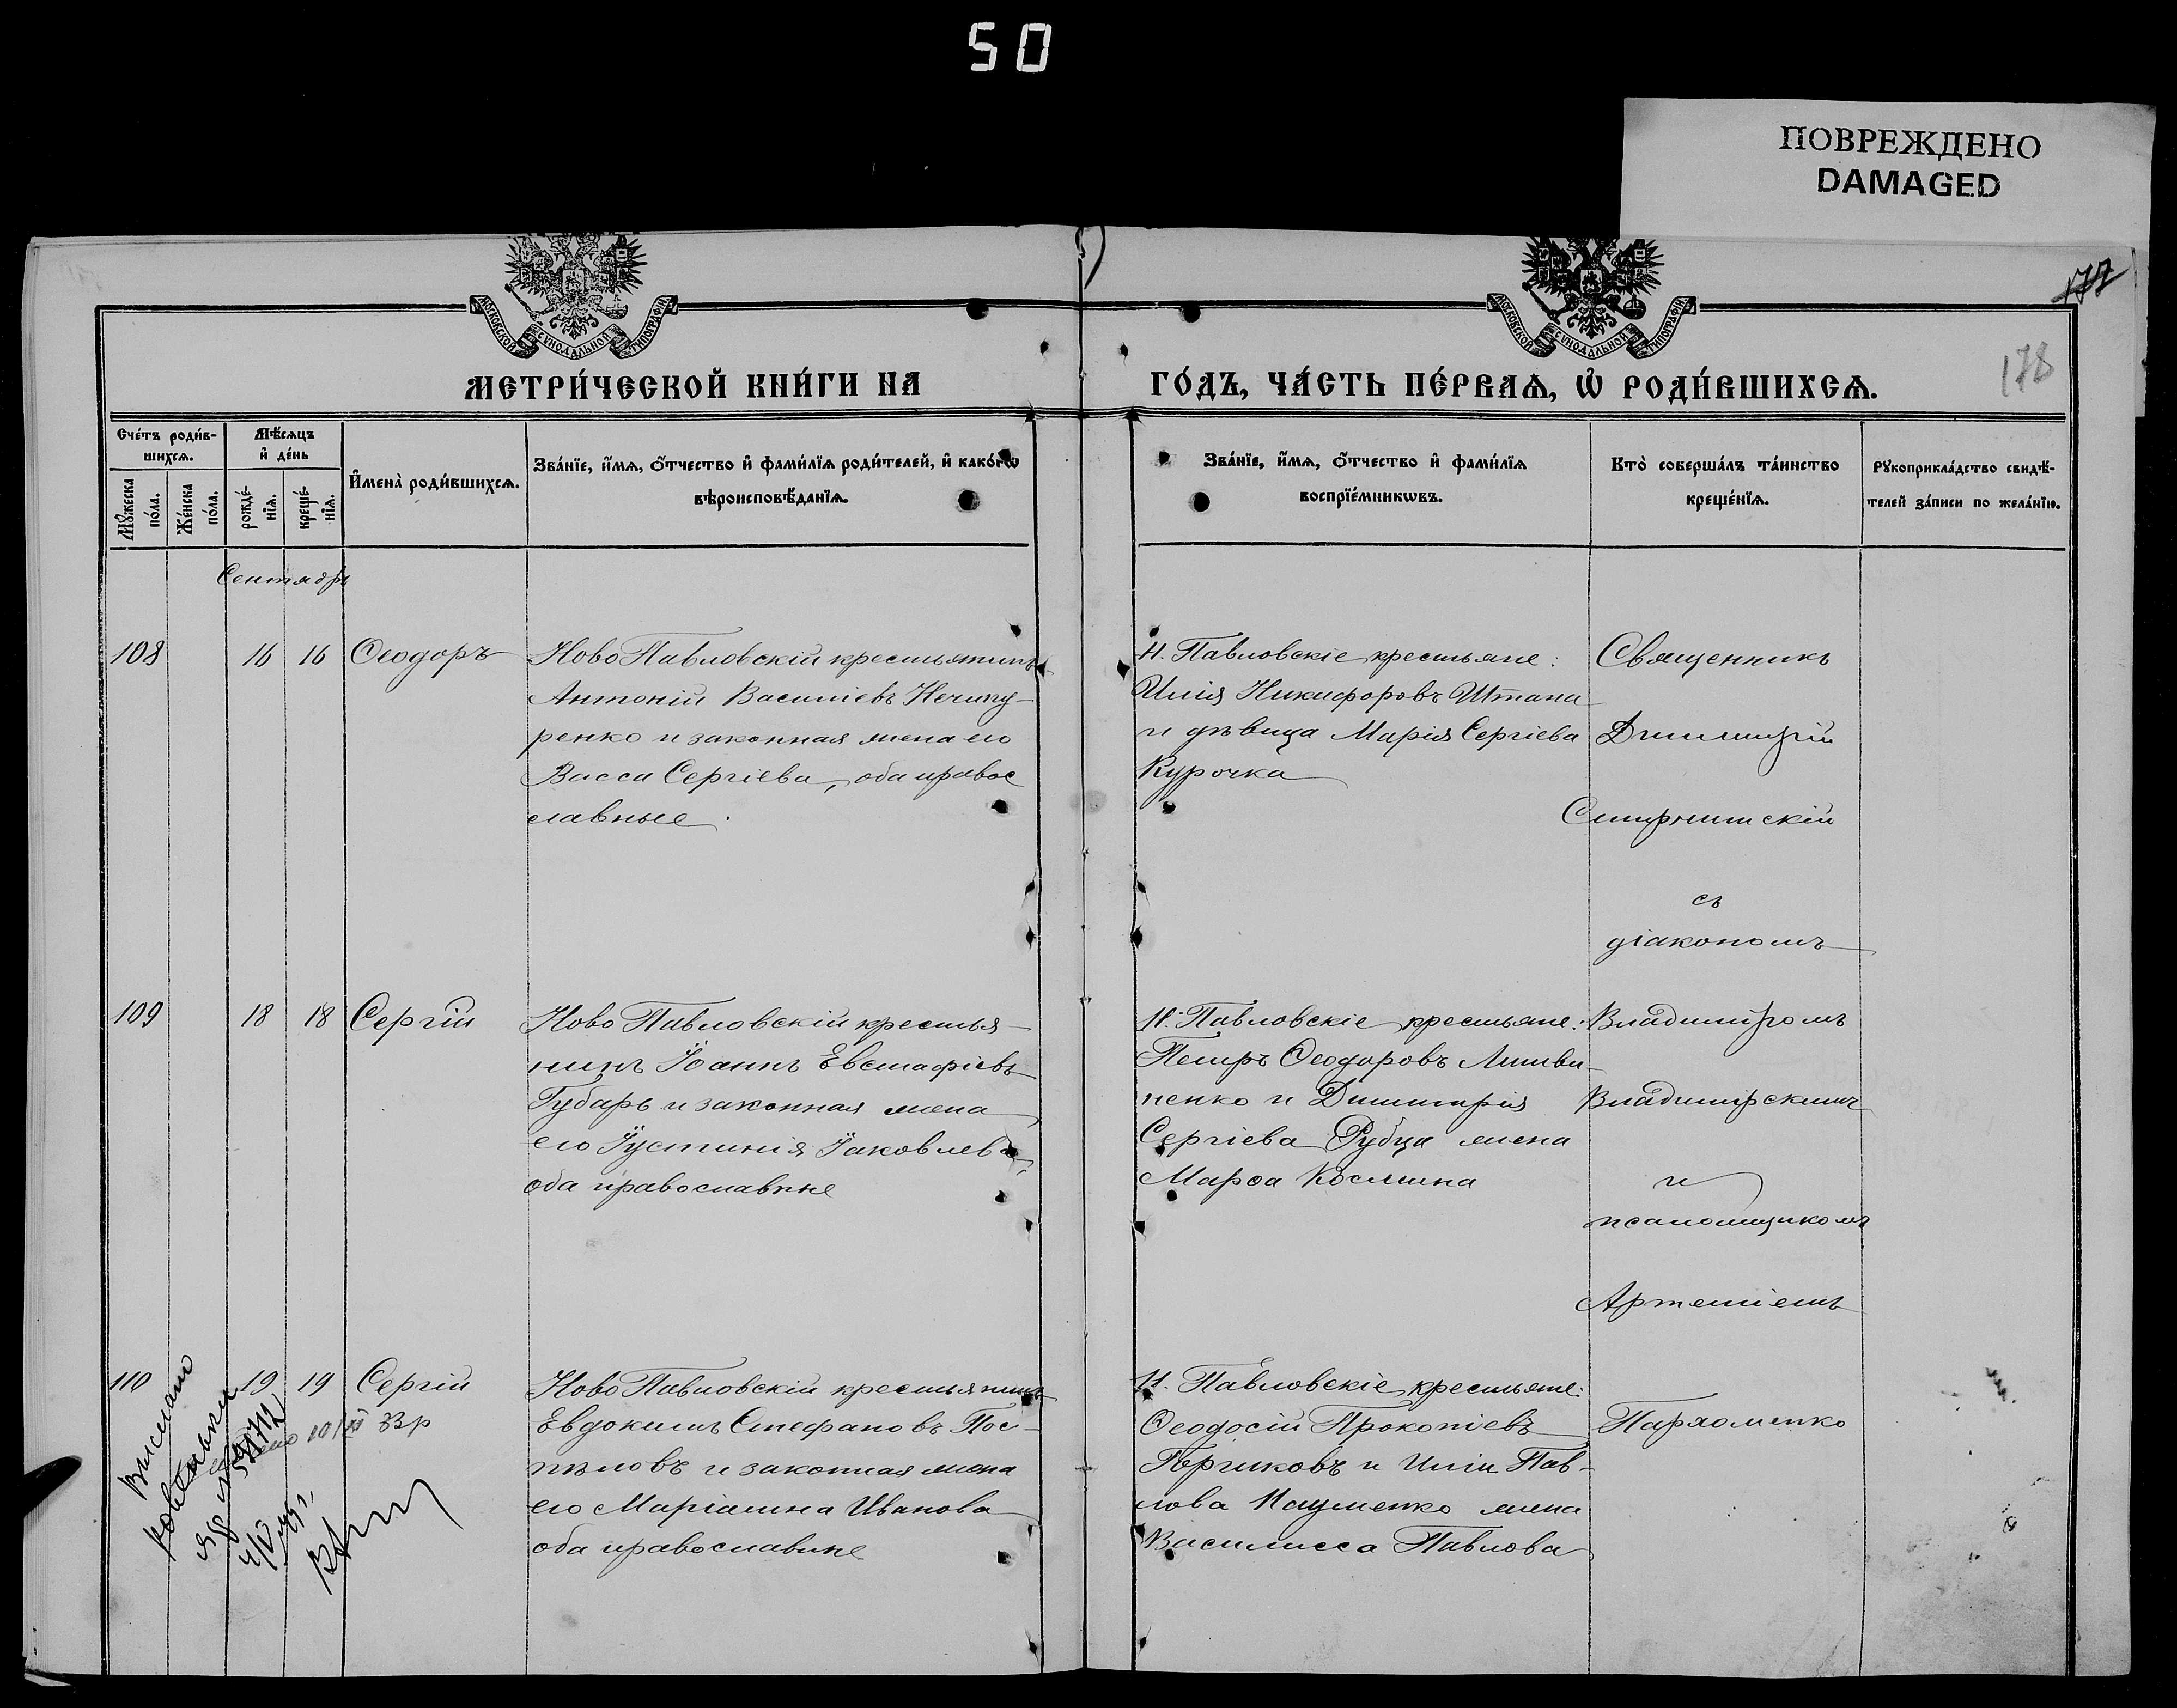 50
ПОВРЕЖДЕНО
DAMAGED
177
178
МОСКОВСКОЙ СѴНОДАЛЬНОЙ ТИПОГРАФІИ
МОСКОВСКОЙ СѴНОДАЛЬНОЙ ТИПОГРАФІИ
МЕТРИ́ЧЕСКОЙ КНИ́ГИ НА
ГО́ДЪ, ЧА́СТЬ ПЕ́РВАѦ, Ѡ҆ РОДИ́ВШИХСѦ.
Сче́тъ роди́в-
шихсѧ.
Мѣ́сѧцъ
и҆ де́нь
Мꙋ́жеска
по́ла.
Же́нска
по́ла.
рожде́-
нїѧ.
креще́-
нїѧ.
И҆мена̀ роди́вшихсѧ.
Зва́нїе, и҆́мѧ, ѻ҆́тчество и҆ фами́лїѧ роди́телей, и҆ како́гѡ
вѣроисповѣ́данїѧ.
Зва́нїе, и҆́мѧ, ѻ҆́тчество и҆ фами́лїѧ
воспрїе́мникѡвъ.
Кто̀ соверша́лъ та́инство
креще́нїѧ.
Рꙋкоприкла́дство свидѣ́-
телей за́писи по жела́нїю.
Сентябрь
108 16 16 Ѳеодоръ
Ново Павловскій крестьянинъ
Антоній Василіевъ Нечипу-
ренко и законная жена его
Васса Сергіева, оба правос
лавные.
Н. Павловскіе крестьяне:
Илія Никифоровъ Штана
и дѣвица Марія Сергіева
Курочка
Священникъ
Димитрій
Смирнитскій
съ
діакономъ
109 18 18 Сергій
Ново Павловскій крестья-
нинъ Іоаннъ Евстафіевъ
Губарь и законная жена
его Іустинія Іаковлева,
оба православные
Н. Павловскіе крестьяне:
Петръ Ѳеодоровъ Литви-
ненко и Димитрія
Сергіева Рубца жена
Марѳа Космина
Владиміромъ
Владимірскимъ
и
псаломщикомъ
Артеміемъ
110 19 19 Сергій
Ново Павловскій крестьянинъ
Евдокимъ Стефановъ Пос-
пѣловъ и законная жена
его Маріамна Иванова
оба православные
Н. Павловскіе крестьяне:
Ѳеодосій Прокопіевъ
Горчиковъ и Иліи Пав-
лова Науменко жена
Василисса Павлова
Пархоменко